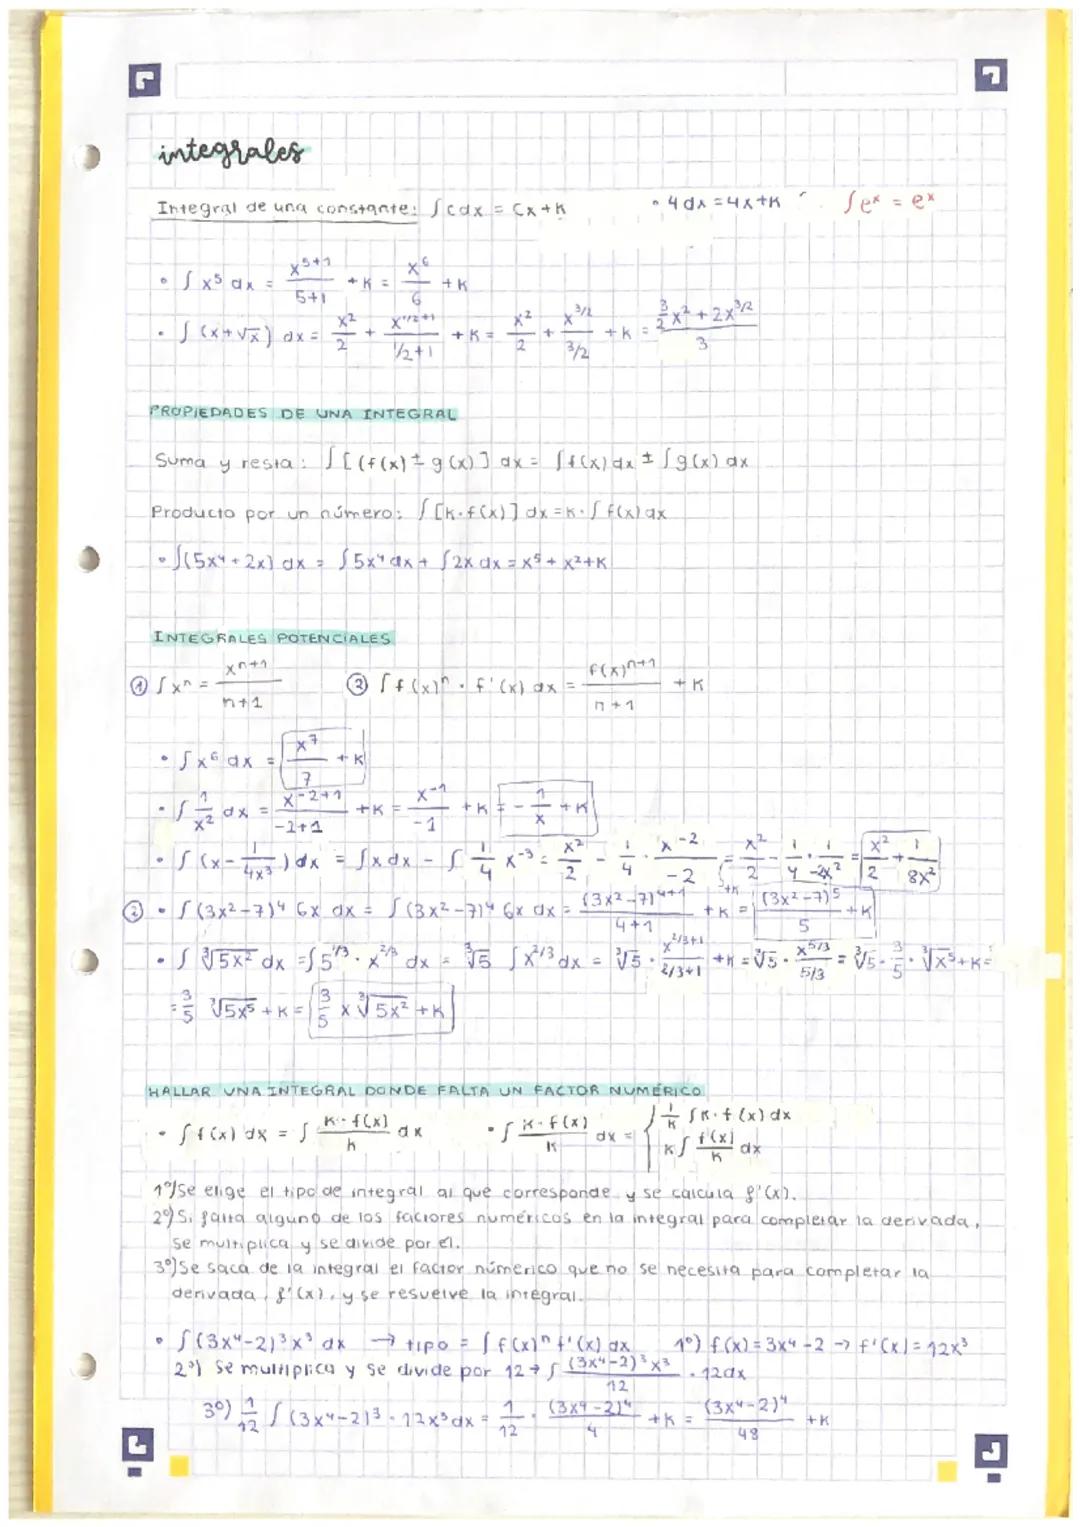 integrales
Integral de una constante: ∫cdx = Cx+K • 4dx = 4x+K ∫eˣ = eˣ
• ∫x⁵ dx = x⁵⁺¹/5+1 + K = x⁶/6 + K
• ∫(x+√x) dx = x²/2 + x^(1/2+1)/(1/2+1) + K = x²/2 + x^(3/2)/(3/2) + K = (3/2 x² + 2x^(3/2))/3
PROPIEDADES DE UNA INTEGRAL
Suma y resta: ∫[(f(x) ± g(x)] dx = ∫f(x)dx ± ∫g(x) dx
Producto por un número: ∫[K·f(x)] dx = K·∫f(x)dx
• ∫(5x⁴+2x) dx = ∫5x⁴dx + ∫2x dx = x⁵ + x²+K
INTEGRALES POTENCIALES
① ∫xⁿ = xⁿ⁺¹/n+1 ② ∫f(x)ⁿ · f'(x) dx = f(x)ⁿ⁺¹/n+1 + K
• ∫x⁶ dx = x⁷/7 + K
• ∫1/x² dx = x⁻²⁺¹/-2+1 + K = x⁻¹/-1 + K = -1/x + K
• ∫(x - 1/4x³) dx = ∫x dx - ∫1/4 x⁻³ = x²/2 - 1/4 · x⁻²/-2 = x²/2 - 1/4 · 1/-2x² = x²/2 + 1/8x² +K
② • ∫(3x²-7)⁴ 6x dx = ∫(3x²-7)⁴ 6x dx = (3x²-7)⁴⁺¹/4+1 + K = (3x²-7)⁵/5 + K
• ∫∛5x² dx = ∫5^(1/3) · x^(2/3) dx = ∛5 ∫x^(2/3) dx = ∛5 · x^(2/3+1)/(2/3+1) + K = ∛5 · x^(5/3)/(5/3) = ∛5 · 3/5 · ∛x⁵ + K =
= 3/5 ∛5x⁵ + K = 3/5 x ∛5x² + K
HALLAR UNA INTEGRAL DONDE FALTA UN FACTOR NUMÉRICO
• ∫f(x) dx = ∫ K·f(x)/K dx • ∫ K·f(x)/K dx = { 1/K ∫K·f(x) dx
K∫ f(x)/K dx
1º) Se elige el tipo de integral al que corresponde y se calcula f'(x).
2º) Si falta alguno de los factores numéricos en la integral para completar la derivada,
se multiplica y se divide por él.
3º) Se saca de la integral el factor númerico que no se necesita para completar la
derivada, f'(x), y se resuelve la integral.
• ∫(3x⁴-2)³x³ dx → tipo = ∫f(x)ⁿ f'(x) dx 1º) f(x) = 3x⁴-2 → f'(x) = 12x³
2º) Se multiplica y se divide por 12 → ∫ (3x⁴-2)³x³/12 · 12dx
3º) 1/12 ∫(3x⁴-2)³ · 12x³dx = 1/12 · (3x⁴-2)⁴/4 + K = (3x⁴-2)⁴/48 + K